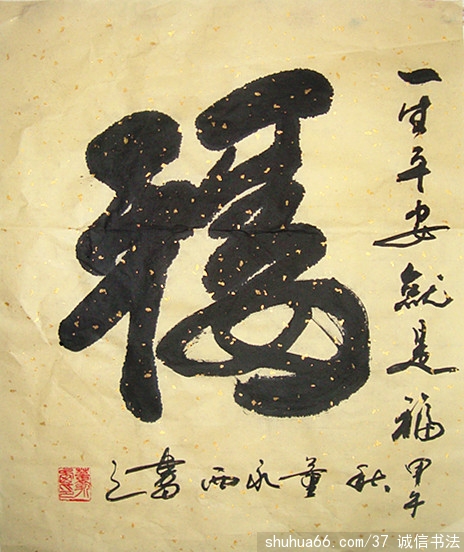 福
一生平安就是福 甲午
秋 董永 書之
shuhua66.com/37 诚信书法